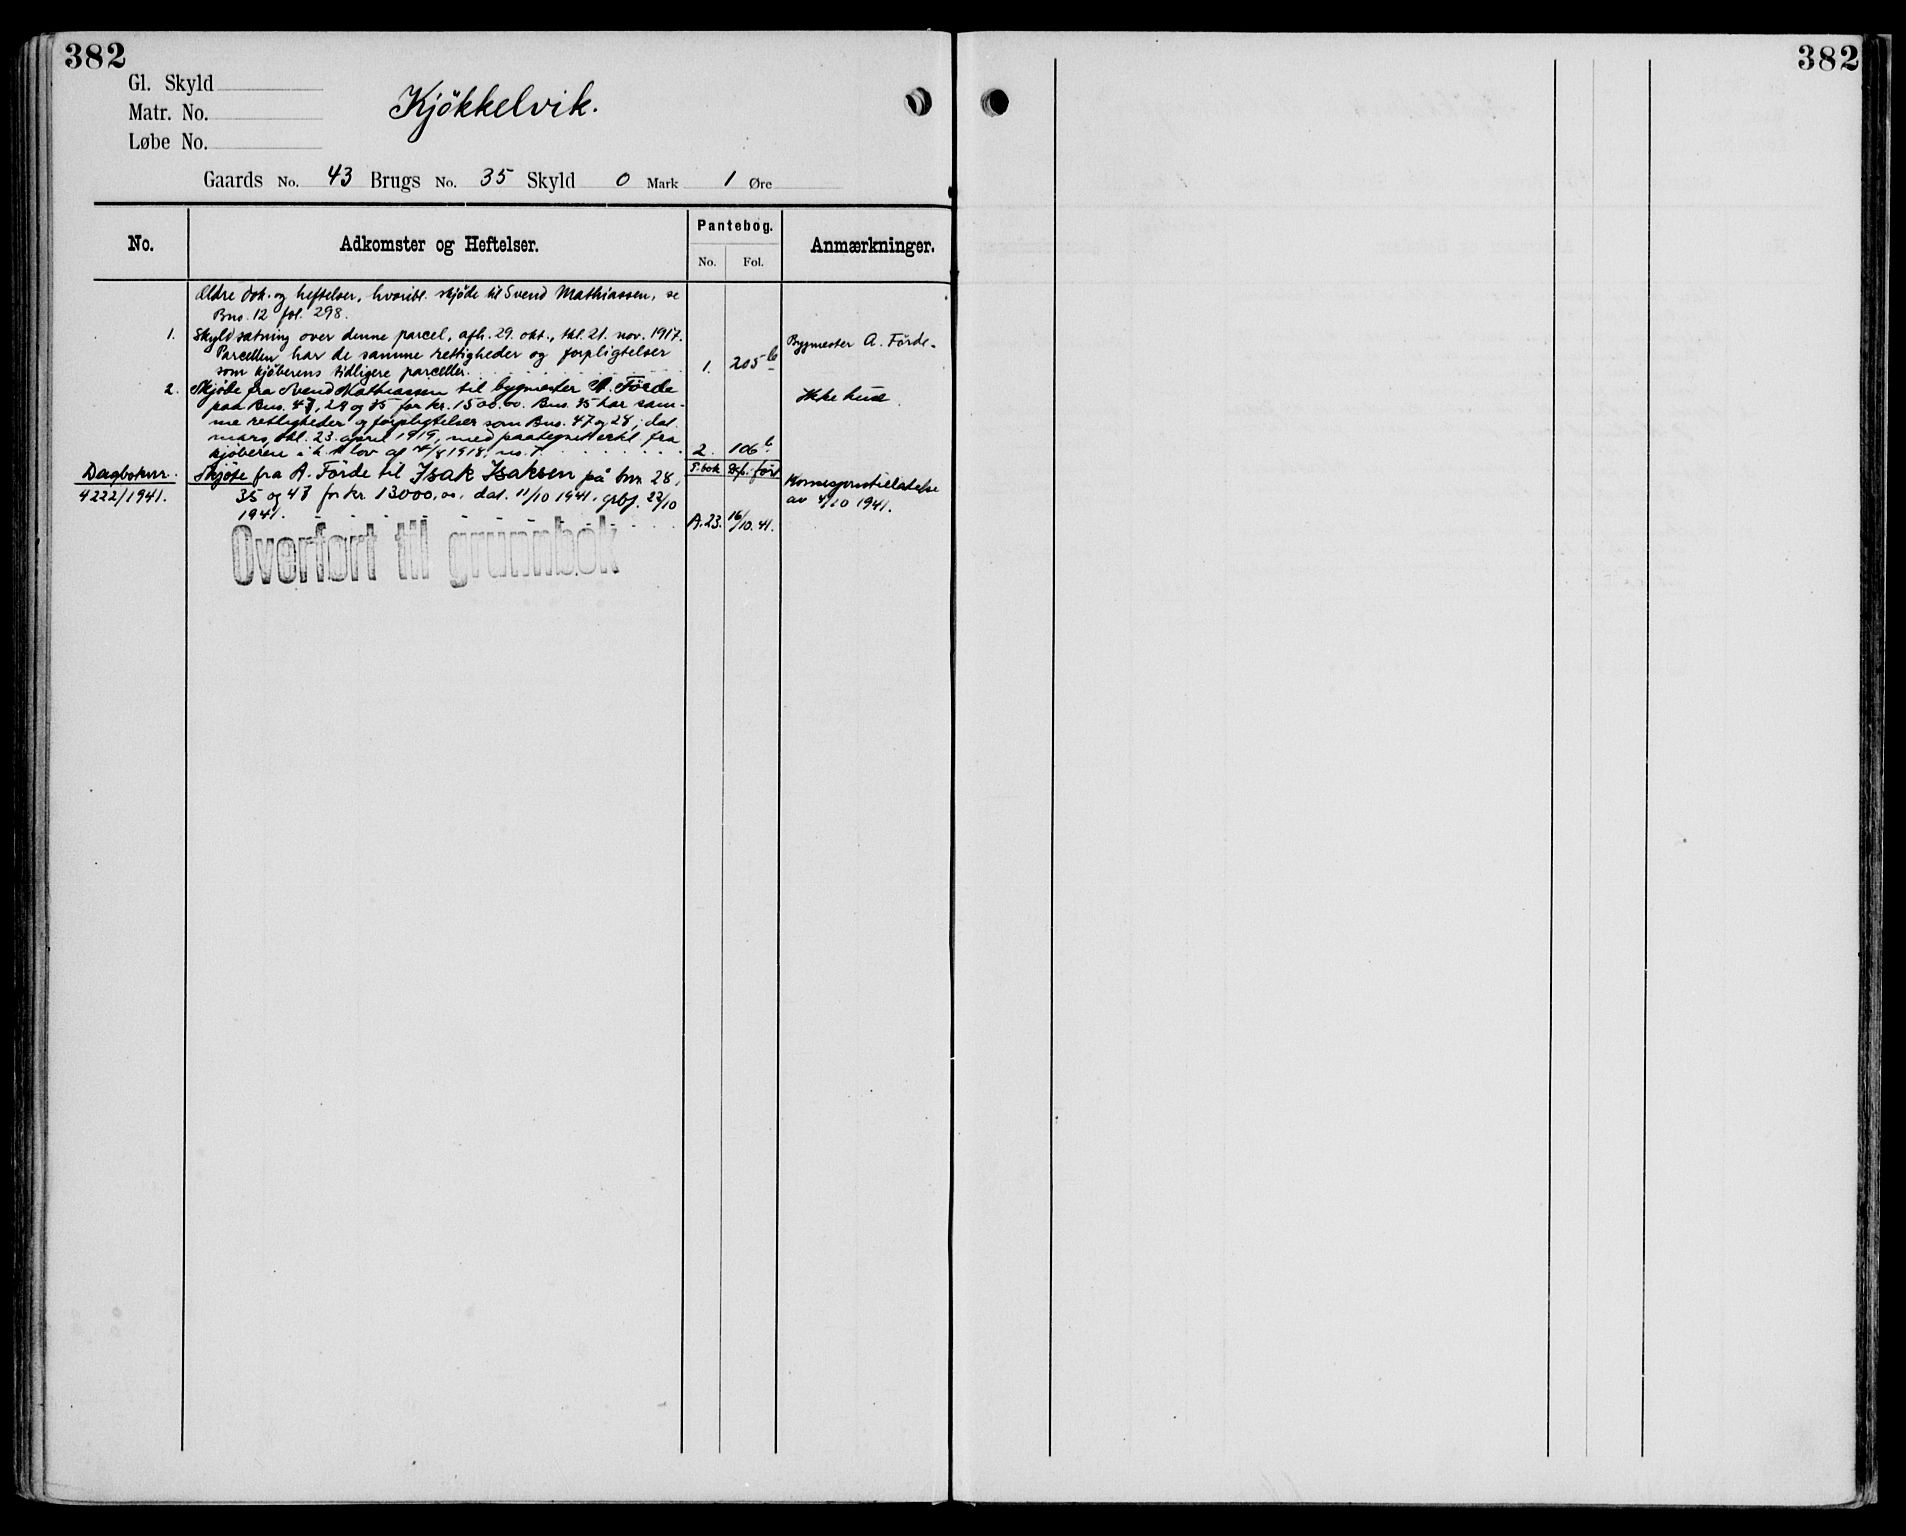 382
382
Gl. Skyld
Matr. No.
Løbe No.
Kjökkelvik.
Gaards No. 43 Brugs No. 35 Skyld 0 Mark 1 Øre
No.
Adkomster og Heftelser.
Pantebog.
No. Fol.
Anmærkninger.
Ældre dok. og heftelser, hvoribl. skjöde til Svend Mathiassen, se
Bno. 12 fol. 298.
1. Skyldsætning over denne parcel, afh. 29. okt., tkl. 21. nov. 1917.
Parcellen har de samme rettigheder og forpligtelser
som kjöberens tidligere parceller. 1. 205 b
Bygmester A. Förde.
2. Skjöte fra Svend Mathiassen til bygmester A. Förde
paa Bno. 47, 28 og 35 for kr. 1500.00. Bno. 35 har sam-
me rettigheder og forpligtelser som Bno. 47 og 28; dat.
mars, tkl. 23. april 1919, med paategnet erkl. fra
kjöberen i h. t. lov af /8 1918, no. 1 2. 106 b
Ikke hus
Dagboknr.
4222/1941.
P.bok
Skjöte fra A. Förde til Isak Isaksen på bnr. 28,
35 og 47 for kr. 13000,00, dat. 11/10 1941, grbf. 22/10
1941. A. 23. 16/10. 41.
Konsesjonstillatelse
av 4/10 1941.
Overført til grunnbok